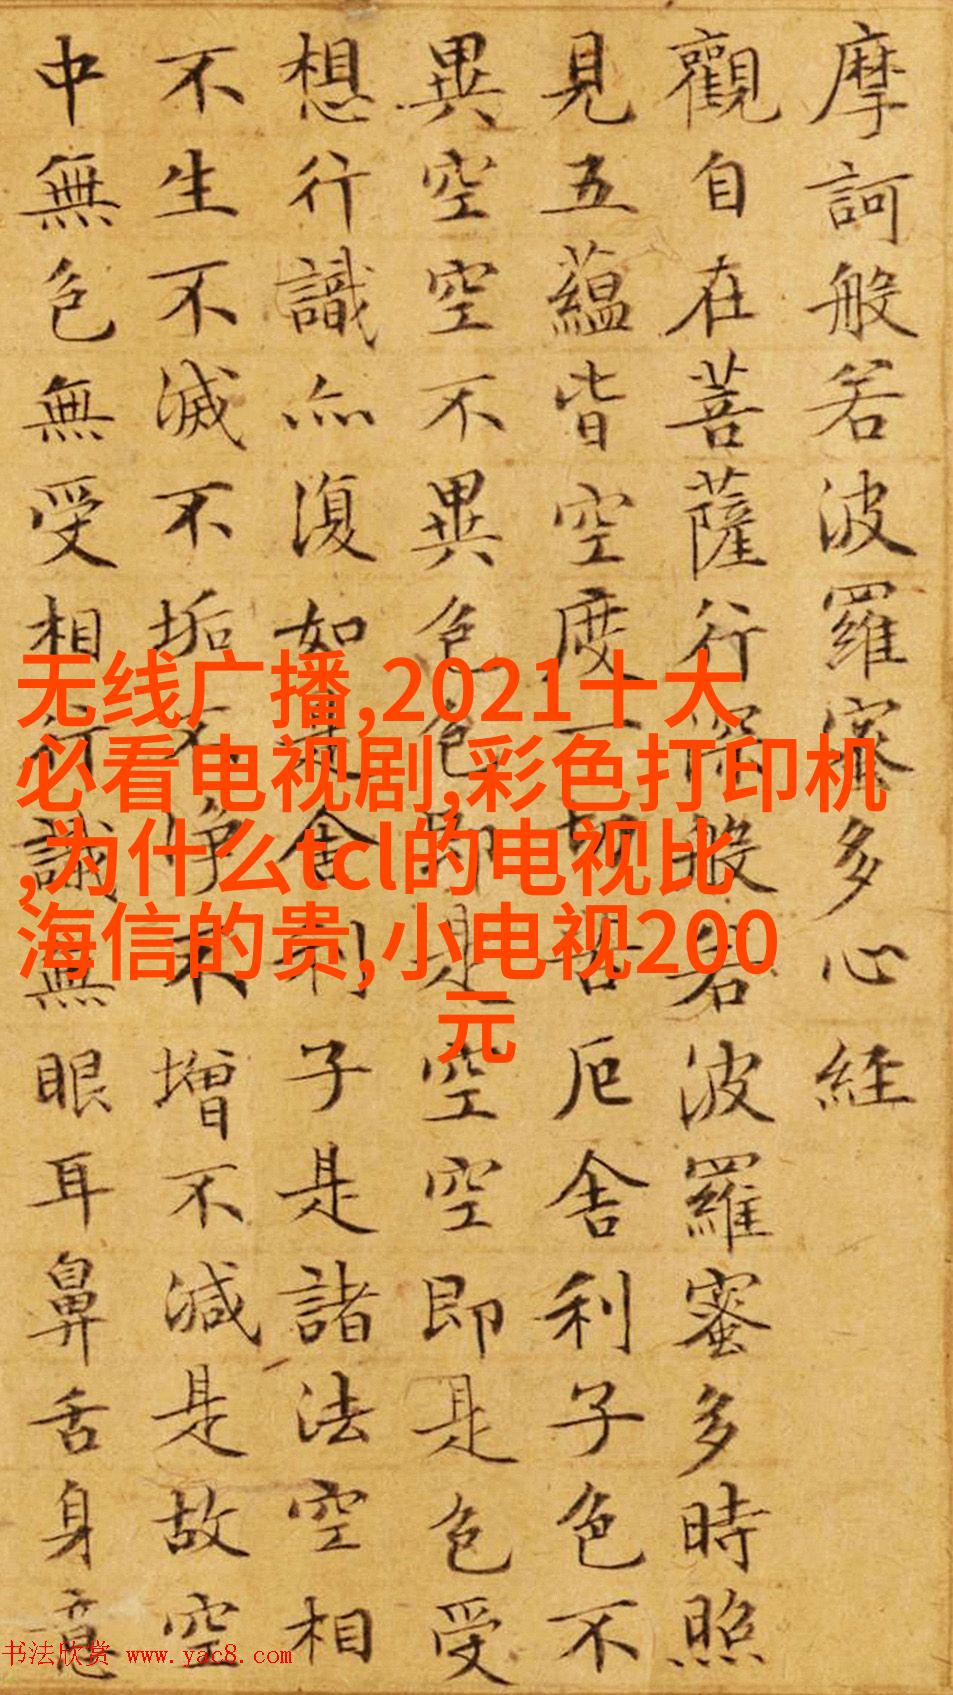 摩訶般若波羅蜜多心経
觀自在菩薩行深般若波羅蜜多時照
見五蘊皆空度一切苦厄舍利子色不
異空空不異色色即是空空即是色受
想行識亦復如是舍利子是諸法空相
不生不滅不垢不淨不增不減是故空
中無色無受相行識無眼耳鼻舌身意
无线广播,2021十大
必看电视剧,彩色打印机
,为什么tcl的电视比
海信的贵,小电视200
元
书法欣赏 www.yac8.com